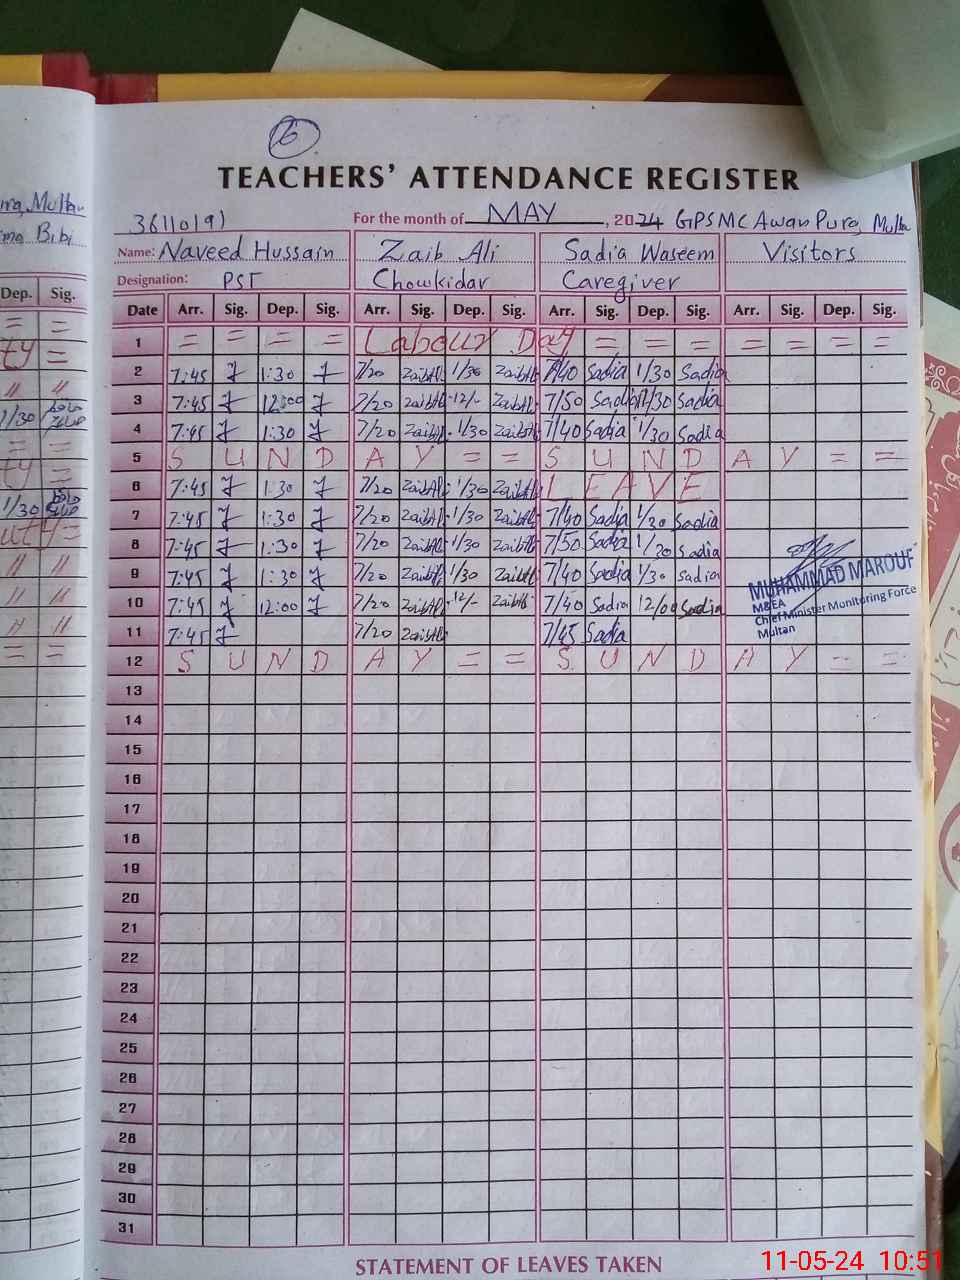 6
TEACHERS' ATTENDANCE REGISTER
36110191 For the month of MAY, 2024 GPSMC Awan Pura, Multan
Name: Naveed Hussain Zaib Ali Sadia Waseem Visitors
Designation: PST Chowkidar Caregiver
Date Arr. Sig. Dep. Sig. Arr. Sig. Dep. Sig. Arr. Sig. Dep. Sig. Arr. Sig. Dep. Sig.
1 = = = = Labour Day = = = = = = =
2 7:45 1:30 7/20 ZaibAli 1/30 ZaibAli 7/40 Sadia 1/30 Sadia
3 7:45 12:00 7/20 ZaibAli 12/- ZaibAli 7/50 Sadia Sadia
4 7:45 1:30 7/20 ZaibAli 1/30 ZaibAli 7/40 Sadia 1/30 Sadia
5 S U N D A Y = = S U N D A Y = =
6 7:45 1:30 7/20 ZaibAli 1/30 ZaibAli L E A V E
7 7:45 1:30 7/20 ZaibAli 1/30 ZaibAli 7/40 Sadia 1/30 Sadia
8 7:45 1:30 7/20 ZaibAli 1/30 ZaibAli 7/50 Sadia 1/30 Sadia
9 7:45 1:30 7/20 ZaibAli 1/30 ZaibAli 7/40 Sadia 1/30 Sadia
10 7:45 12:00 7/20 ZaibAli 12/- ZaibAli 7/40 Sadia 12/00 Sadia
11 7:45 7/20 ZaibAli 7/45 Sadia
12 S U N D A Y = = S U N D A Y = =
MUHAMMAD MAROUF
M&EA
Chief Minister Monitoring Force
Multan
13
14
15
16
17
18
19
20
21
22
23
24
25
26
27
28
29
30
31
STATEMENT OF LEAVES TAKEN
11-05-24 10:51
Multan
Bibi
Dep. Sig.
= =
ty =
" "
1/30
= =
ty =
1/30
uty =
" "
" "
" "
= =